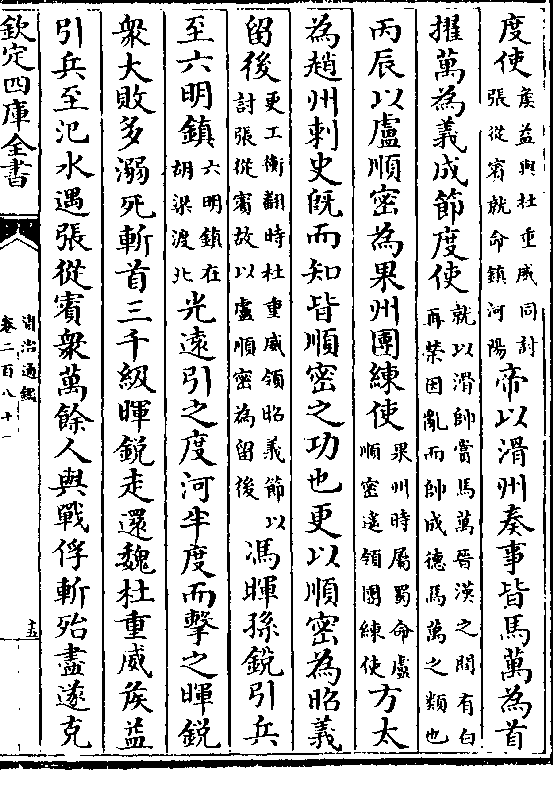 度使侯益與杜重威同討張從賓就命鎮河陽帝以滑州奏事皆馬萬為首
擢萬為義成節度使就以滑帥賞馬萬晉漢之間有白再榮因亂而帥成德馬萬之類也
丙辰以盧順密為果州團練使果州時屬蜀命盧順密遙領團練使方太
為趙州刺史旣而知皆順密之功也更以順密為昭義
留後更工衡翻時杜重威領昭義節以討張從賓故以盧順密為留後馮暉孫銳引兵
至六明鎮六明鎮在胡梁渡北光遠引之度河半度而擊之暉銳
衆大敗多溺死斬首三千級暉銳走還魏杜重威侯益
引兵至汜水遇張從賓衆萬餘人與戰俘斬殆盡遂克
欽定四庫全書
資治通鑑
卷二百八十一
十五